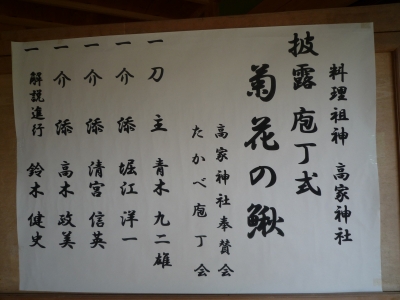 料理祖神 高家神社
披露 庖丁式
菊花の鰍
高家神社奉賛会
たかべ庖丁会
一 刀主 青木九二雄
一 介添 堀江洋一
一 介添 清宮信英
一 介添 高木政美
一 解説進行 鈴木健史